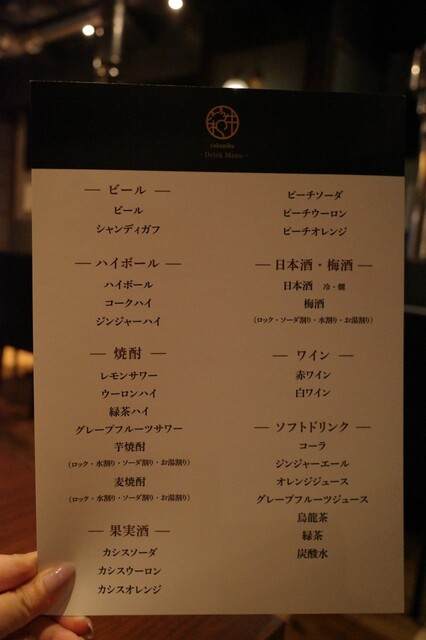 yakuniku
- Drink Menu -
― ビール ―
ビール
シャンディガフ
― ハイボール ―
ハイボール
コークハイ
ジンジャーハイ
― 焼酎 ―
レモンサワー
ウーロンハイ
緑茶ハイ
グレープフルーツサワー
芋焼酎
(ロック・水割り・ソーダ割り・お湯割り)
麦焼酎
(ロック・水割り・ソーダ割り・お湯割り)
― 果実酒 ―
カシスソーダ
カシスウーロン
カシスオレンジ
ピーチソーダ
ピーチウーロン
ピーチオレンジ
― 日本酒・梅酒 ―
日本酒 冷・燗
梅酒
(ロック・ソーダ割り・水割り・お湯割り)
― ワイン ―
赤ワイン
白ワイン
― ソフトドリンク ―
コーラ
ジンジャーエール
オレンジジュース
グレープフルーツジュース
烏龍茶
緑茶
炭酸水